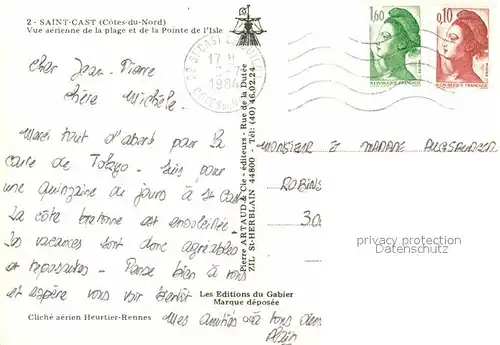 2 - SAINT-CAST (Côtes-du-Nord)
Vue aerienne de la plage et de la Pointe de l'Isle
Cher Jean-Pierre
chère Michèle.
Merci tout d'abord pour la
carte de Tokyo. Suis pour
une quinzaine de jours à St Cast
La côte bretonne est ensoleillée.
les vacances sont donc agréables
et reposantes - Pense bien à vous
et espère vous voir bientôt
Mes amitiés à tous deux
Alain
Les Editions du Gabier
Marque déposée
Cliché aérien Heurtier-Rennes
Pierre ARTAUD & Cie - éditeurs - Rue de la Dutée
ZIL St-HERBLAIN 44800 - Tél: (40) 46.02.24
17 H
1984
1,60
0,10
MONSIEUR & MADAME
30
privacy protection
Datenschutz